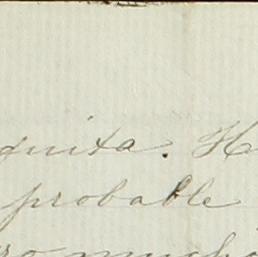 quita. H
probable
ro mucho